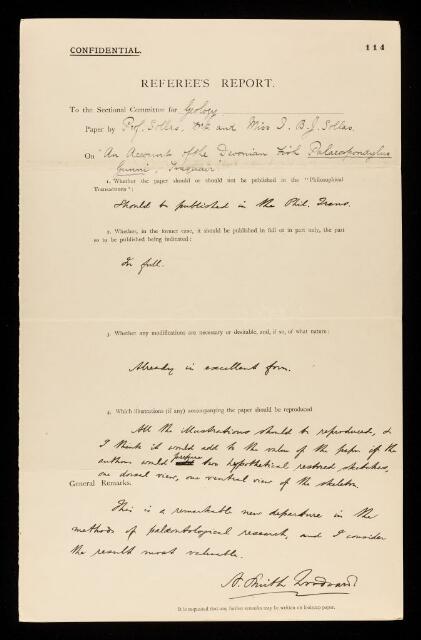 CONFIDENTIAL.
114
REFEREE'S REPORT.
To the Sectional Committee for Geology
Paper by Prof. Sollas, and Miss I. B. J. Sollas.
On "An Account of the Devonian Fish Palaeospondylus
Gunni, Traquair"
1. Whether the paper should or should not be published in the "Philosophical
Transactions":
Should be published in the Phil. Trans.
2. Whether, in the former case, it should be published in full or in part only, the part
so to be published being indicated:
In full.
3. Whether any modifications are necessary or desirable, and, if so, of what nature:
Already in excellent form.
4. Which illustrations (if any) accompanying the paper should be reproduced
All the illustrations should be reproduced, &
I think it would add to the value of the paper if the
authors would prepare two hypothetical restored sketches,
one dorsal view, one ventral view of the skeleton.
General Remarks.
This is a remarkable new departure in the
methods of palæontological research, and I consider
the result most valuable.
A. Smith Woodward
It is requested that any further remarks may be written on foolscap paper.